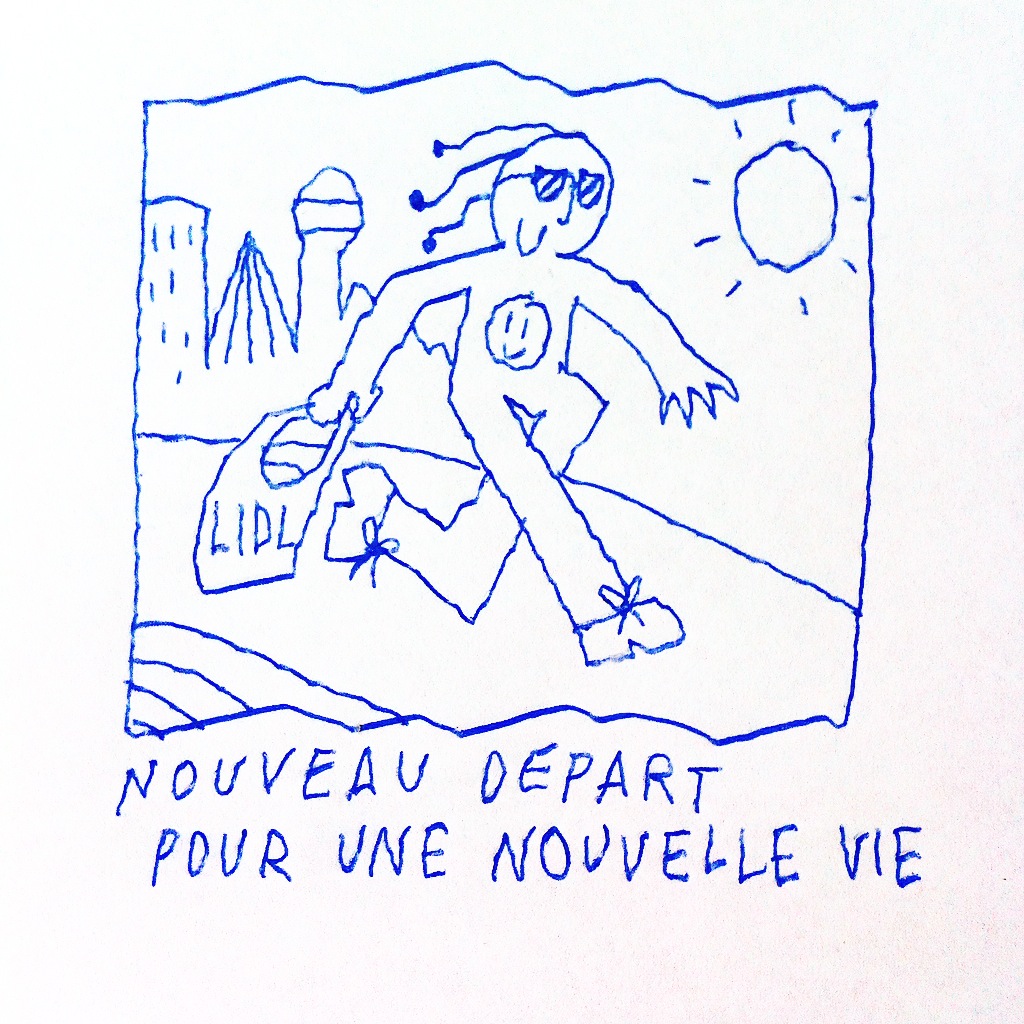 LIDL
NOUVEAU DEPART
POUR UNE NOUVELLE VIE